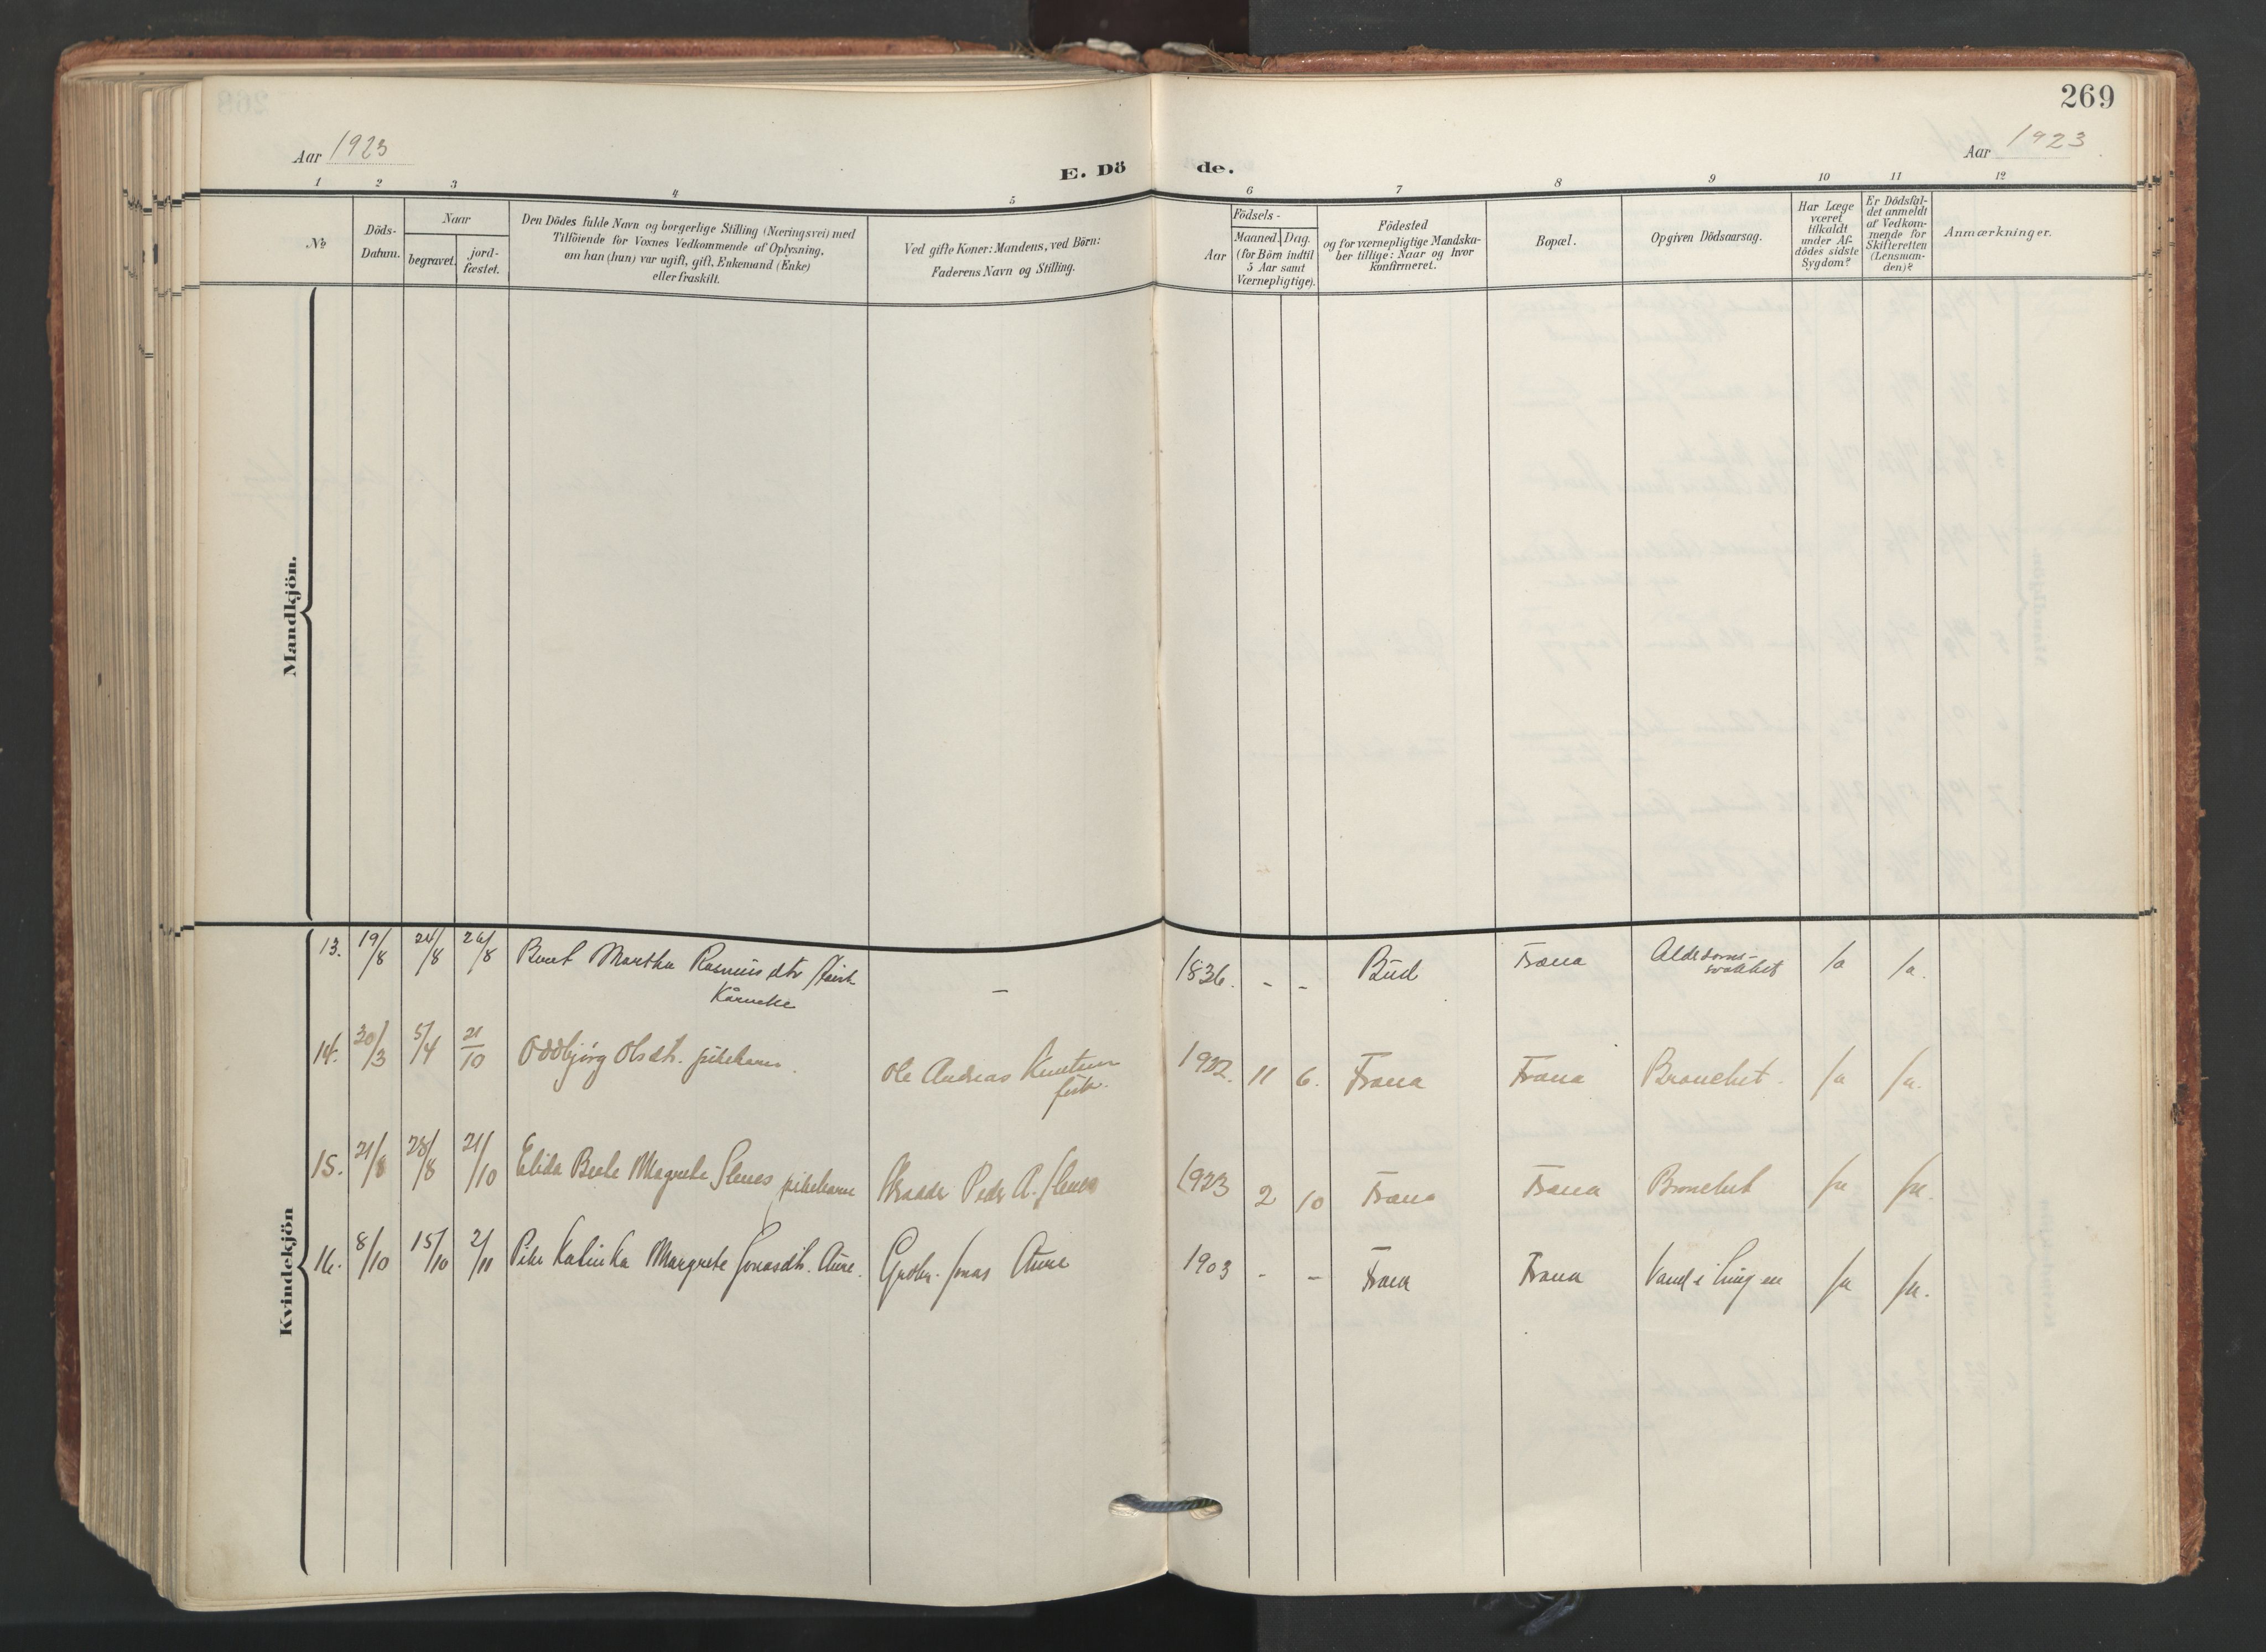 269
Aar 1923
Aar 1923
E. Dö de.
1 2 3 4 5 6 7 8 9 10 11 12
No
Döds-
Datum.
Naar
begravet.
jord-
fæstet.
Den Dödes fulde Navn og borgerlige Stilling (Næringsvei) med
Tilföiende for Voxnes Vedkommende af Oplysning,
om han (hun) var ugift, gift, Enkemand (Enke)
eller fraskilt.
Ved gifte Koner: Mandens, ved Börn:
Faderens Navn og Stilling.
Födsels-
Aar
Maaned. Dag.
(for Börn indtil
5 Aar samt
Værnepligtige).
Födested
og for værnepligtige Mandska-
ber tillige: Naar og hvor
konfirmeret.
Bopæl.
Opgiven Dödsaarsag.
Har Læge
været
tilkaldt
under Af-
dödes sidste
Sygdom?
Er Dödsfal-
det anmeldt
af Vedkom-
mende for
Skifteretten
(Lensman-
den)?
Anmærkninger.
Mandkjön.
Kvindekjön
13. 19/8 24/8 26/8 Beret Martha Rasmusdtr - 1836. - - Bud Fræna Alderdoms- Ja Ja.
svakhet
Kårenke
14. 30/3 5/4 21/10 Oddbjörg Olsdtr. pikebarn. Ole Andreas Knutsen 1922. 11 6. Fræna Fræna Bronchit. Ja Ja.
fisk.
15. 21/8 28/8 21/10 Elida Berte Magrete Stenes pikebarn Skrædder Peder A. Stenes 1923 2 10 Fræna Fræna Bronchit Ja Ja.
16. 8/10 15/10 2/11 Pike Katinka Margrete Jonasdtr. Aure. Grdbr. Jonas Aure 1903 - - Fræna Fræna Vand i lungen Ja Ja.